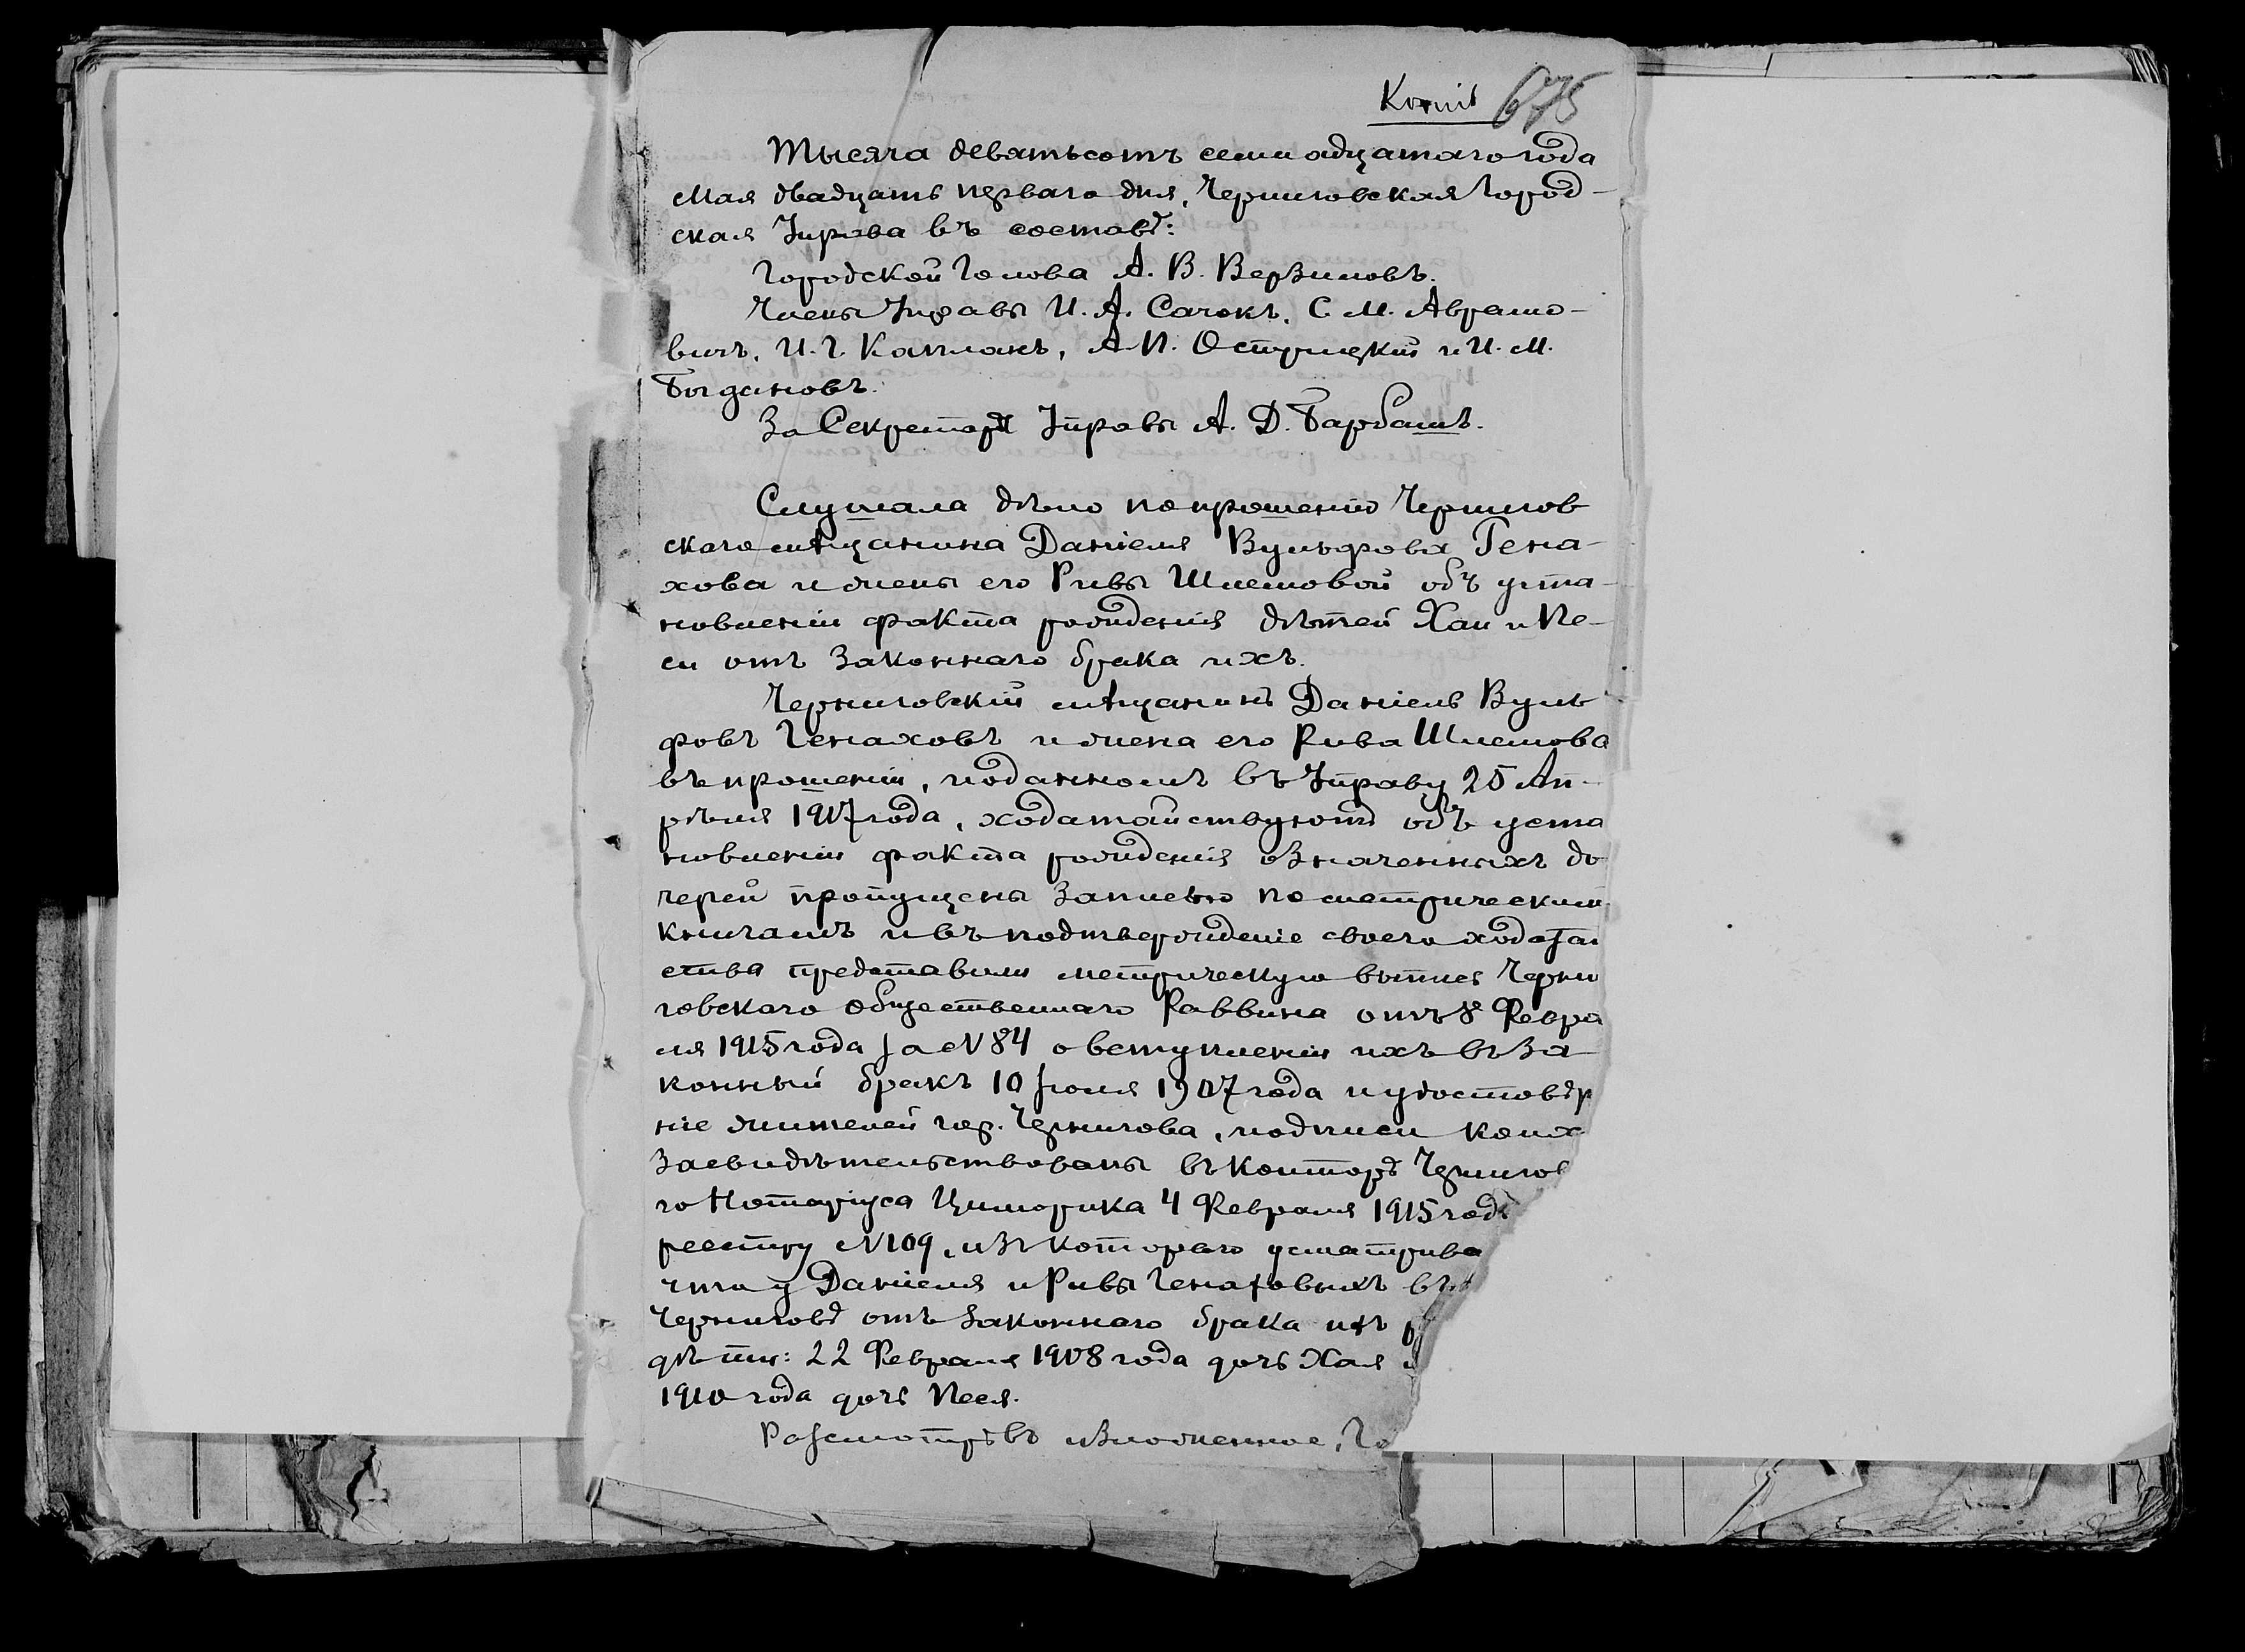 Копія 675
Тысяча девятьсотъ семнадцатаго года
Мая двадцать перваго дня, Черниговская Город-
ская Управа въ составѣ:
Городской Голова А. В. Верзиловъ.
Члены Управы И. А. Сачокъ, С. М. Абрамо-
вичъ, И. Г. Капланъ, А. П. и И. М.
Богдановъ.
За Секретаря Управы А. Д. Барбашъ.
Слушала дѣло по прошенію Чернигов
скаго мѣщанина Даніеля Вульфова Гена-
хова и жены его Ривы Шлемовой объ уста-
новленіи факта рожденія дѣтей Хаи и Пе-
си отъ законнаго брака ихъ.
Черниговскій мѣщанинъ Даніель Вуль
фовъ Генаховъ и жена его Рива Шлемова
въ прошеніи, поданномъ въ Управу 25 Ап-
рѣля 1917 года, ходатайствуютъ объ уста
новленіи факта рожденія означенныхъ до
черей пропущены записью по метрическим
книгамъ и въ подтвержденіе своего ходатай
ства представили метрическую выпись Черни
говскаго Общественнаго Раввина отъ 8 Февра
ля 1915 года за № 84 о вступленіи ихъ въ за
конный бракъ 10 Іюля 1907 года и удостовѣр
ніе жителей гор. Чернигова, подписи коихъ
засвидѣтельствованы въ Конторѣ Чернигов
го Нотаріуса Цимофика 4 Февраля 1915 года
реестру № 109, изъ котораго усматрива
что у Даніеля и Ривы Генаховыхъ въ
Черниговѣ отъ законнаго брака ихъ р
дѣти: 22 Февраля 1908 года дочь Хая и
1910 года дочь Песя.
Разсмотрѣвъ изложенное, Го